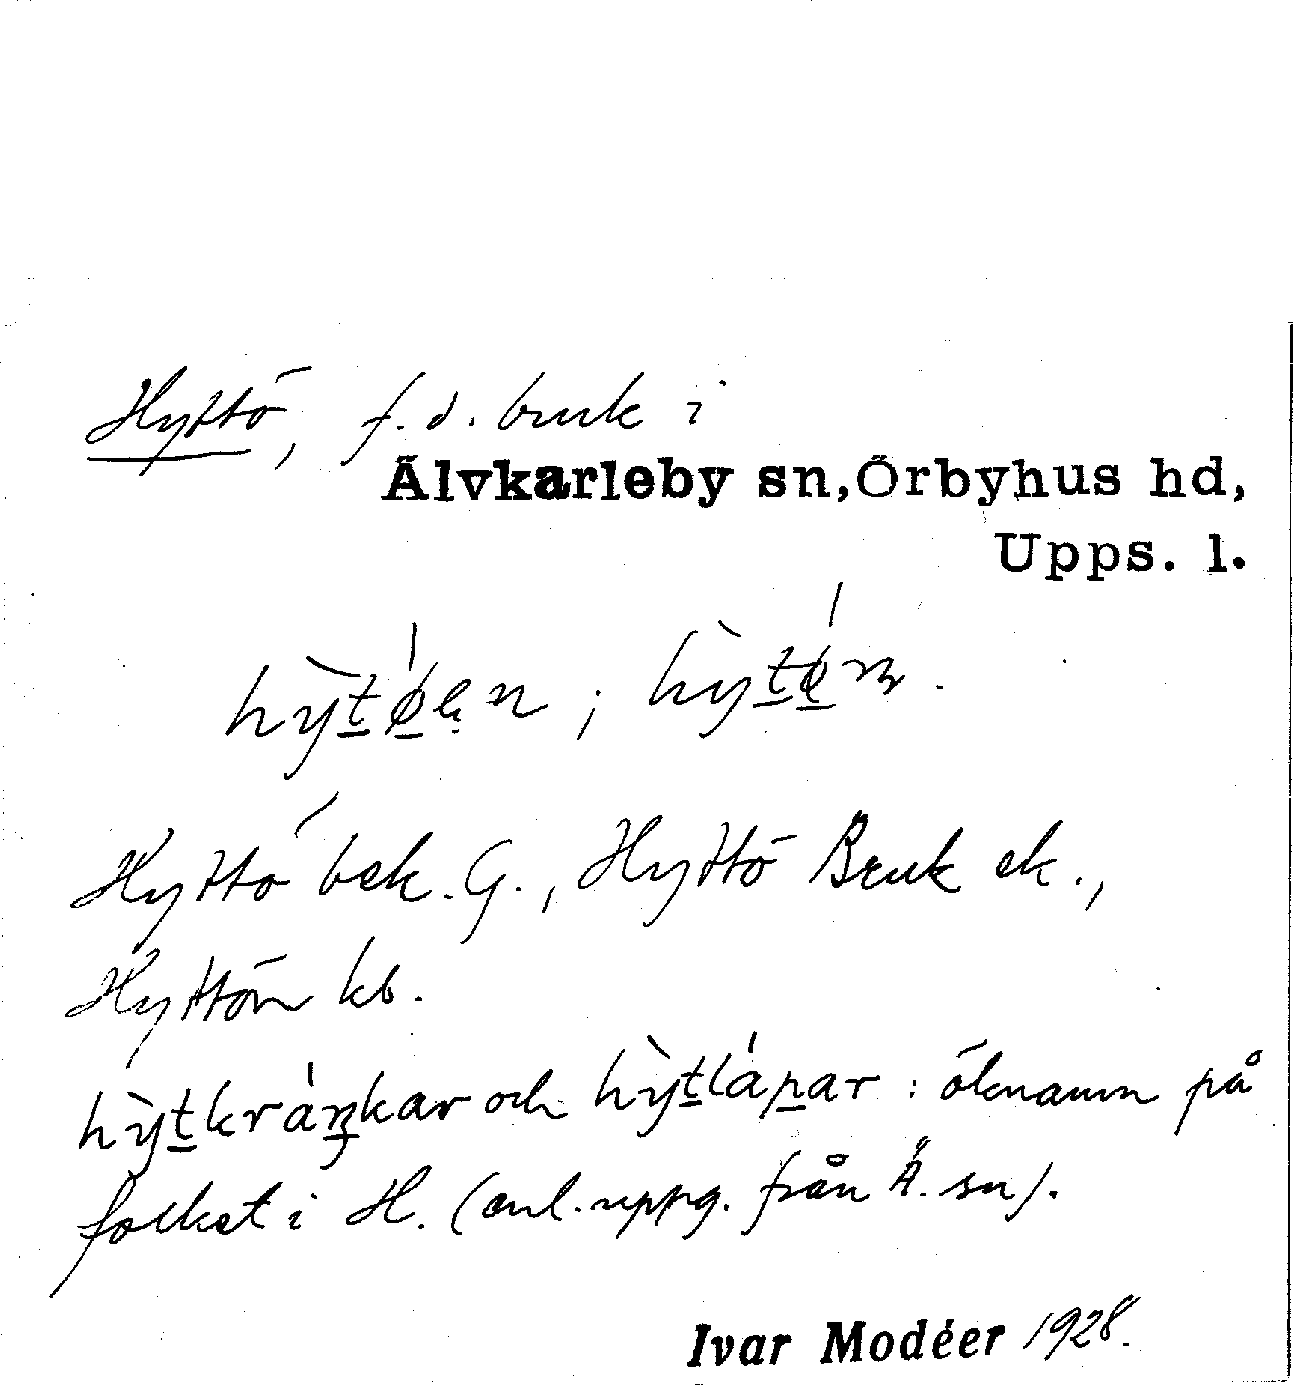 Hyttö, f.d. bruk i
Älvkarleby sn, Örbyhus hd,
Upps. l.
hỳt̲ǿ̲ən; hỳt̲ǿ̲n.
Hyttö bek. G., Hyttö Bruk ek.,
Hyttön kb.
hỳt̲kráŋkar och hỳt̲láp̲ar: öknamn på
folket i H. (enl. uppg. från Ä. sn).
Ivar Modéer 1928.